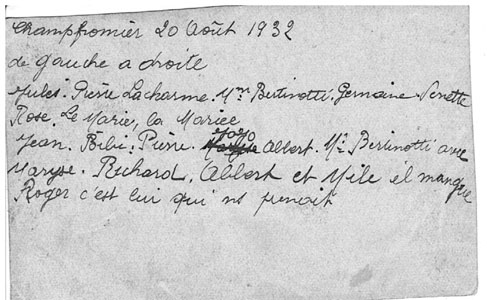 Champfromier 20 Août 1932
de gauche a droite
Jules. Pierre Lacharme. Mme Bertinotti. Germaine. Ginette
Rose. Le Marié, la Mariée
Jean. Bébé. Pierre. Jojo Albert. Mr Bertinotti avec
Maryse. Richard. Albert et Mile il manque
Roger c'est lui qui ns prenait